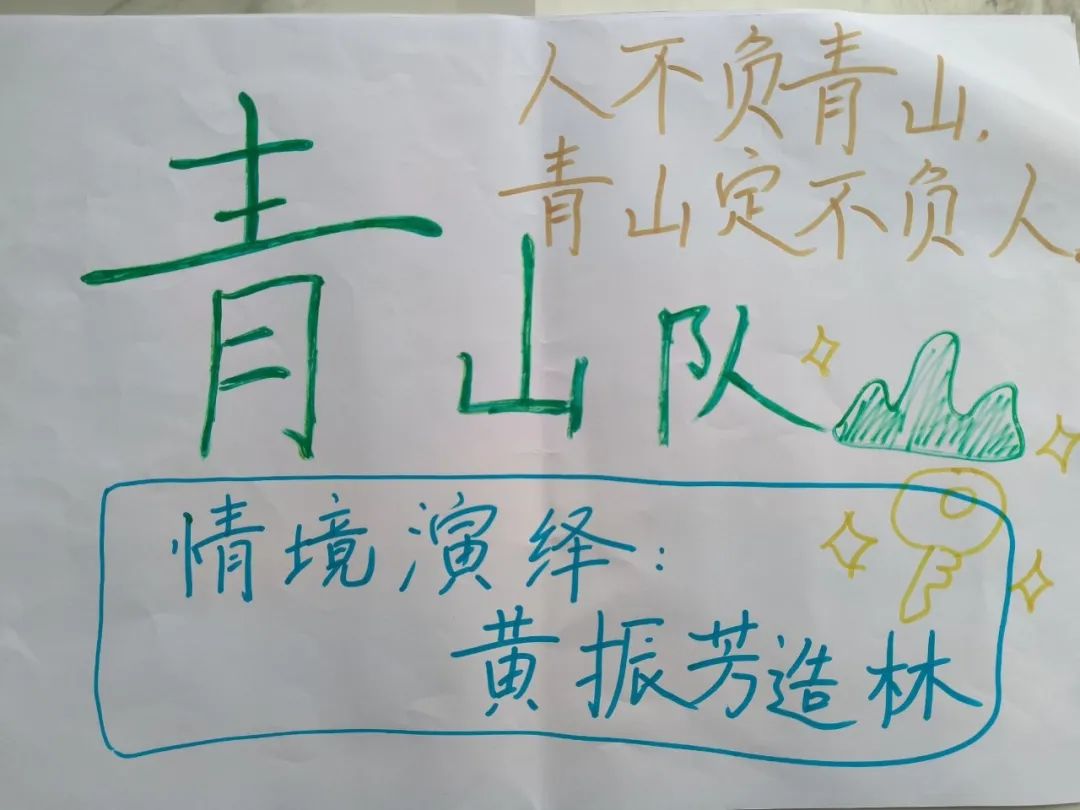 人不负青山,
青山定不负人.
青山队
情境演绎:
黄振芳造林